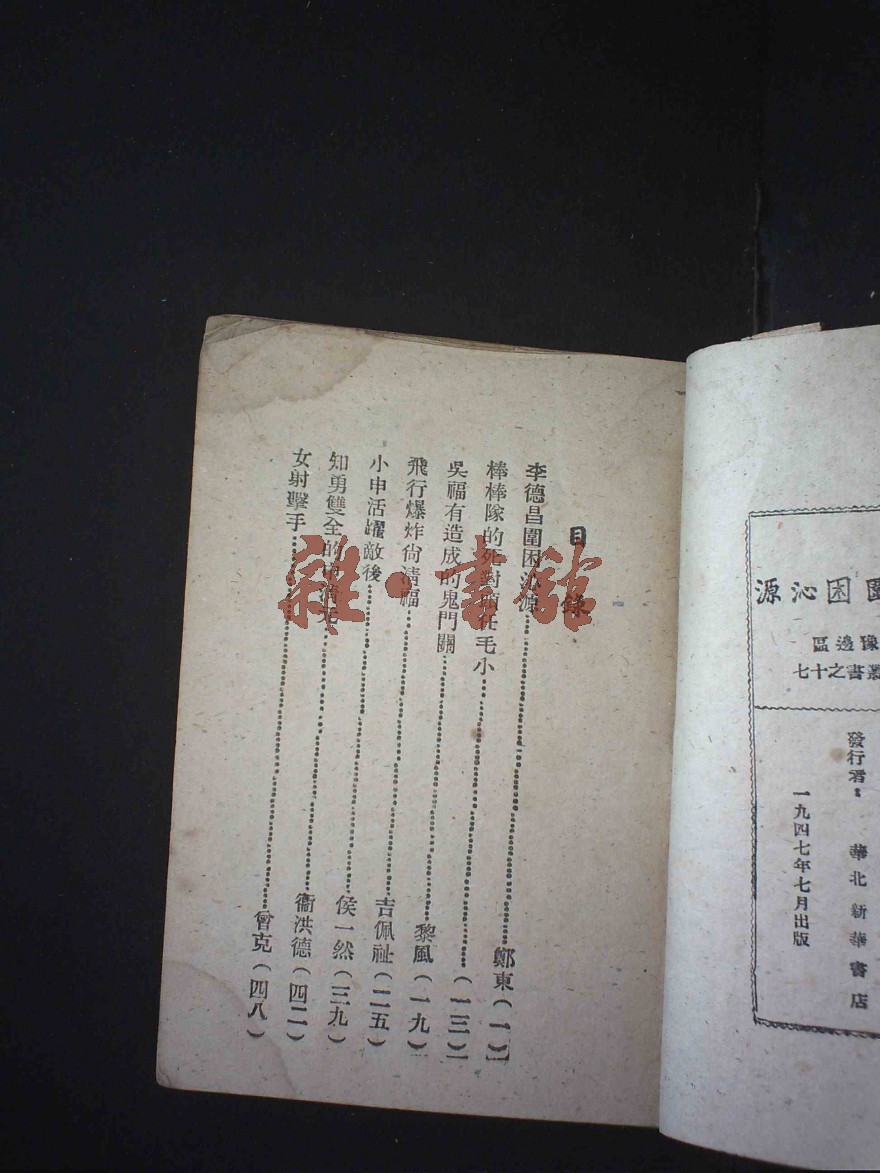 圍困沁源
豫邊區
叢書之十七
發行者：華北新華書店
一九四七年七月出版
目錄
李德昌圍困沁源……鄭東（一）
棒棒隊的死對頭任毛小……（一三）
吳福有造成的鬼門關……黎風（一九）
飛行爆炸尙清福……吉佩祉（二五）
小申活躍敵後……侯一然（三九）
知勇雙全的……衞洪德（四二）
女射擊手……曾克（四八）
雜·書館